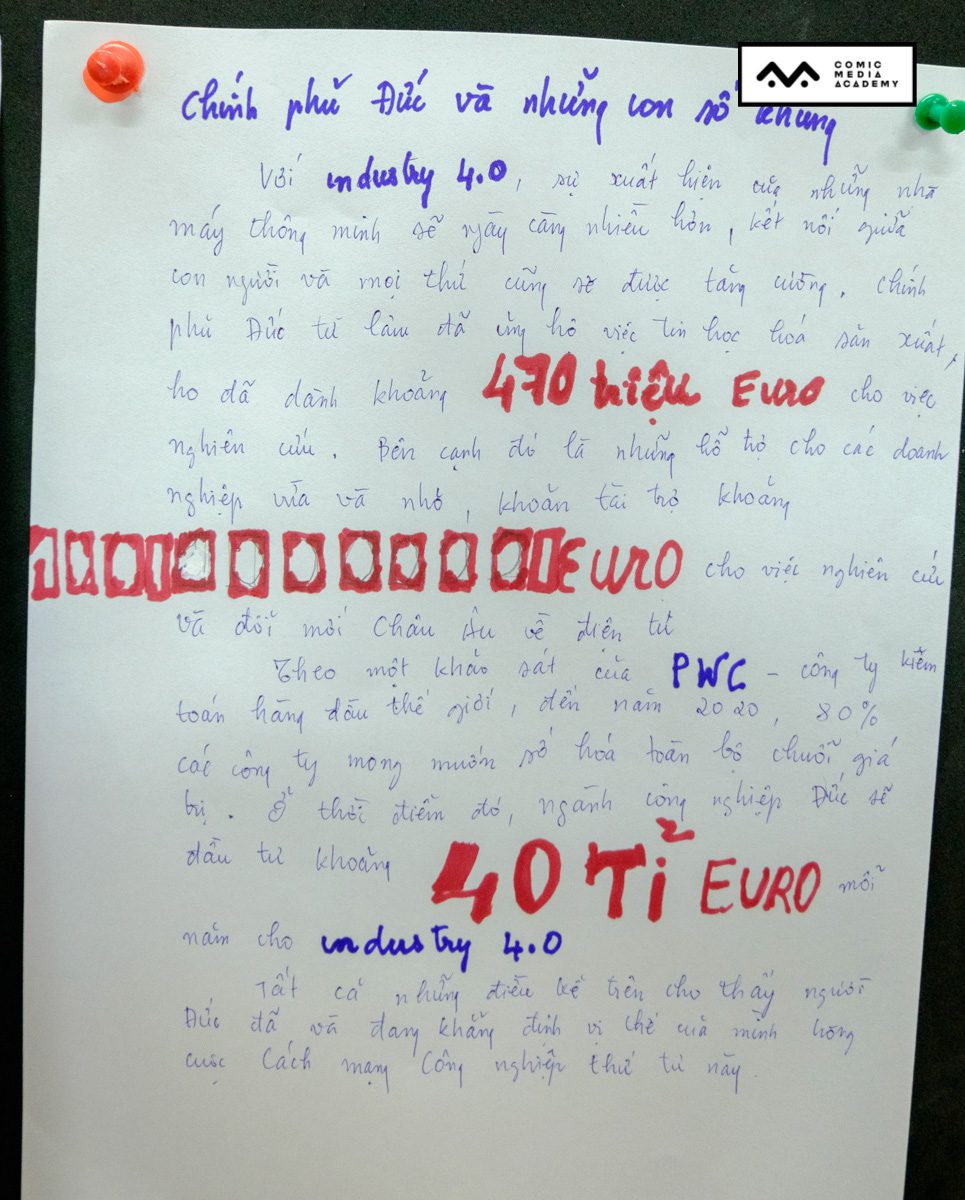 COMIC
MEDIA
ACADEMY
Chính phủ Đức và những con số khủng
Với industry 4.0, sự xuất hiện của những nhà
máy thông minh sẽ ngày càng nhiều hơn, kết nối giữa
con người và mọi thứ cũng sẽ được tăng cường. Chính
phủ Đức từ lâu đã ủng hộ việc tin học hoá sản xuất,
họ đã dành khoảng 470 triệu Euro cho việc
nghiên cứu. Bên cạnh đó là những hỗ trợ cho các doanh
nghiệp vừa và nhỏ, khoản tài trợ khoảng
EURO cho việc nghiên cứu
và đổi mới Châu Âu về điện tử
Theo một khảo sát của PWC - công ty kiểm
toán hàng đầu thế giới, đến năm 2020, 80%
các công ty mong muốn số hóa toàn bộ chuỗi giá
trị. Ở thời điểm đó, ngành công nghiệp Đức sẽ
đầu tư khoảng 40 Tỉ EURO mỗi
năm cho industry 4.0
Tất cả những điều kể trên cho thấy người
Đức đã và đang khẳng định vị thế của mình trong
cuộc Cách mạng Công nghiệp thứ tư này.